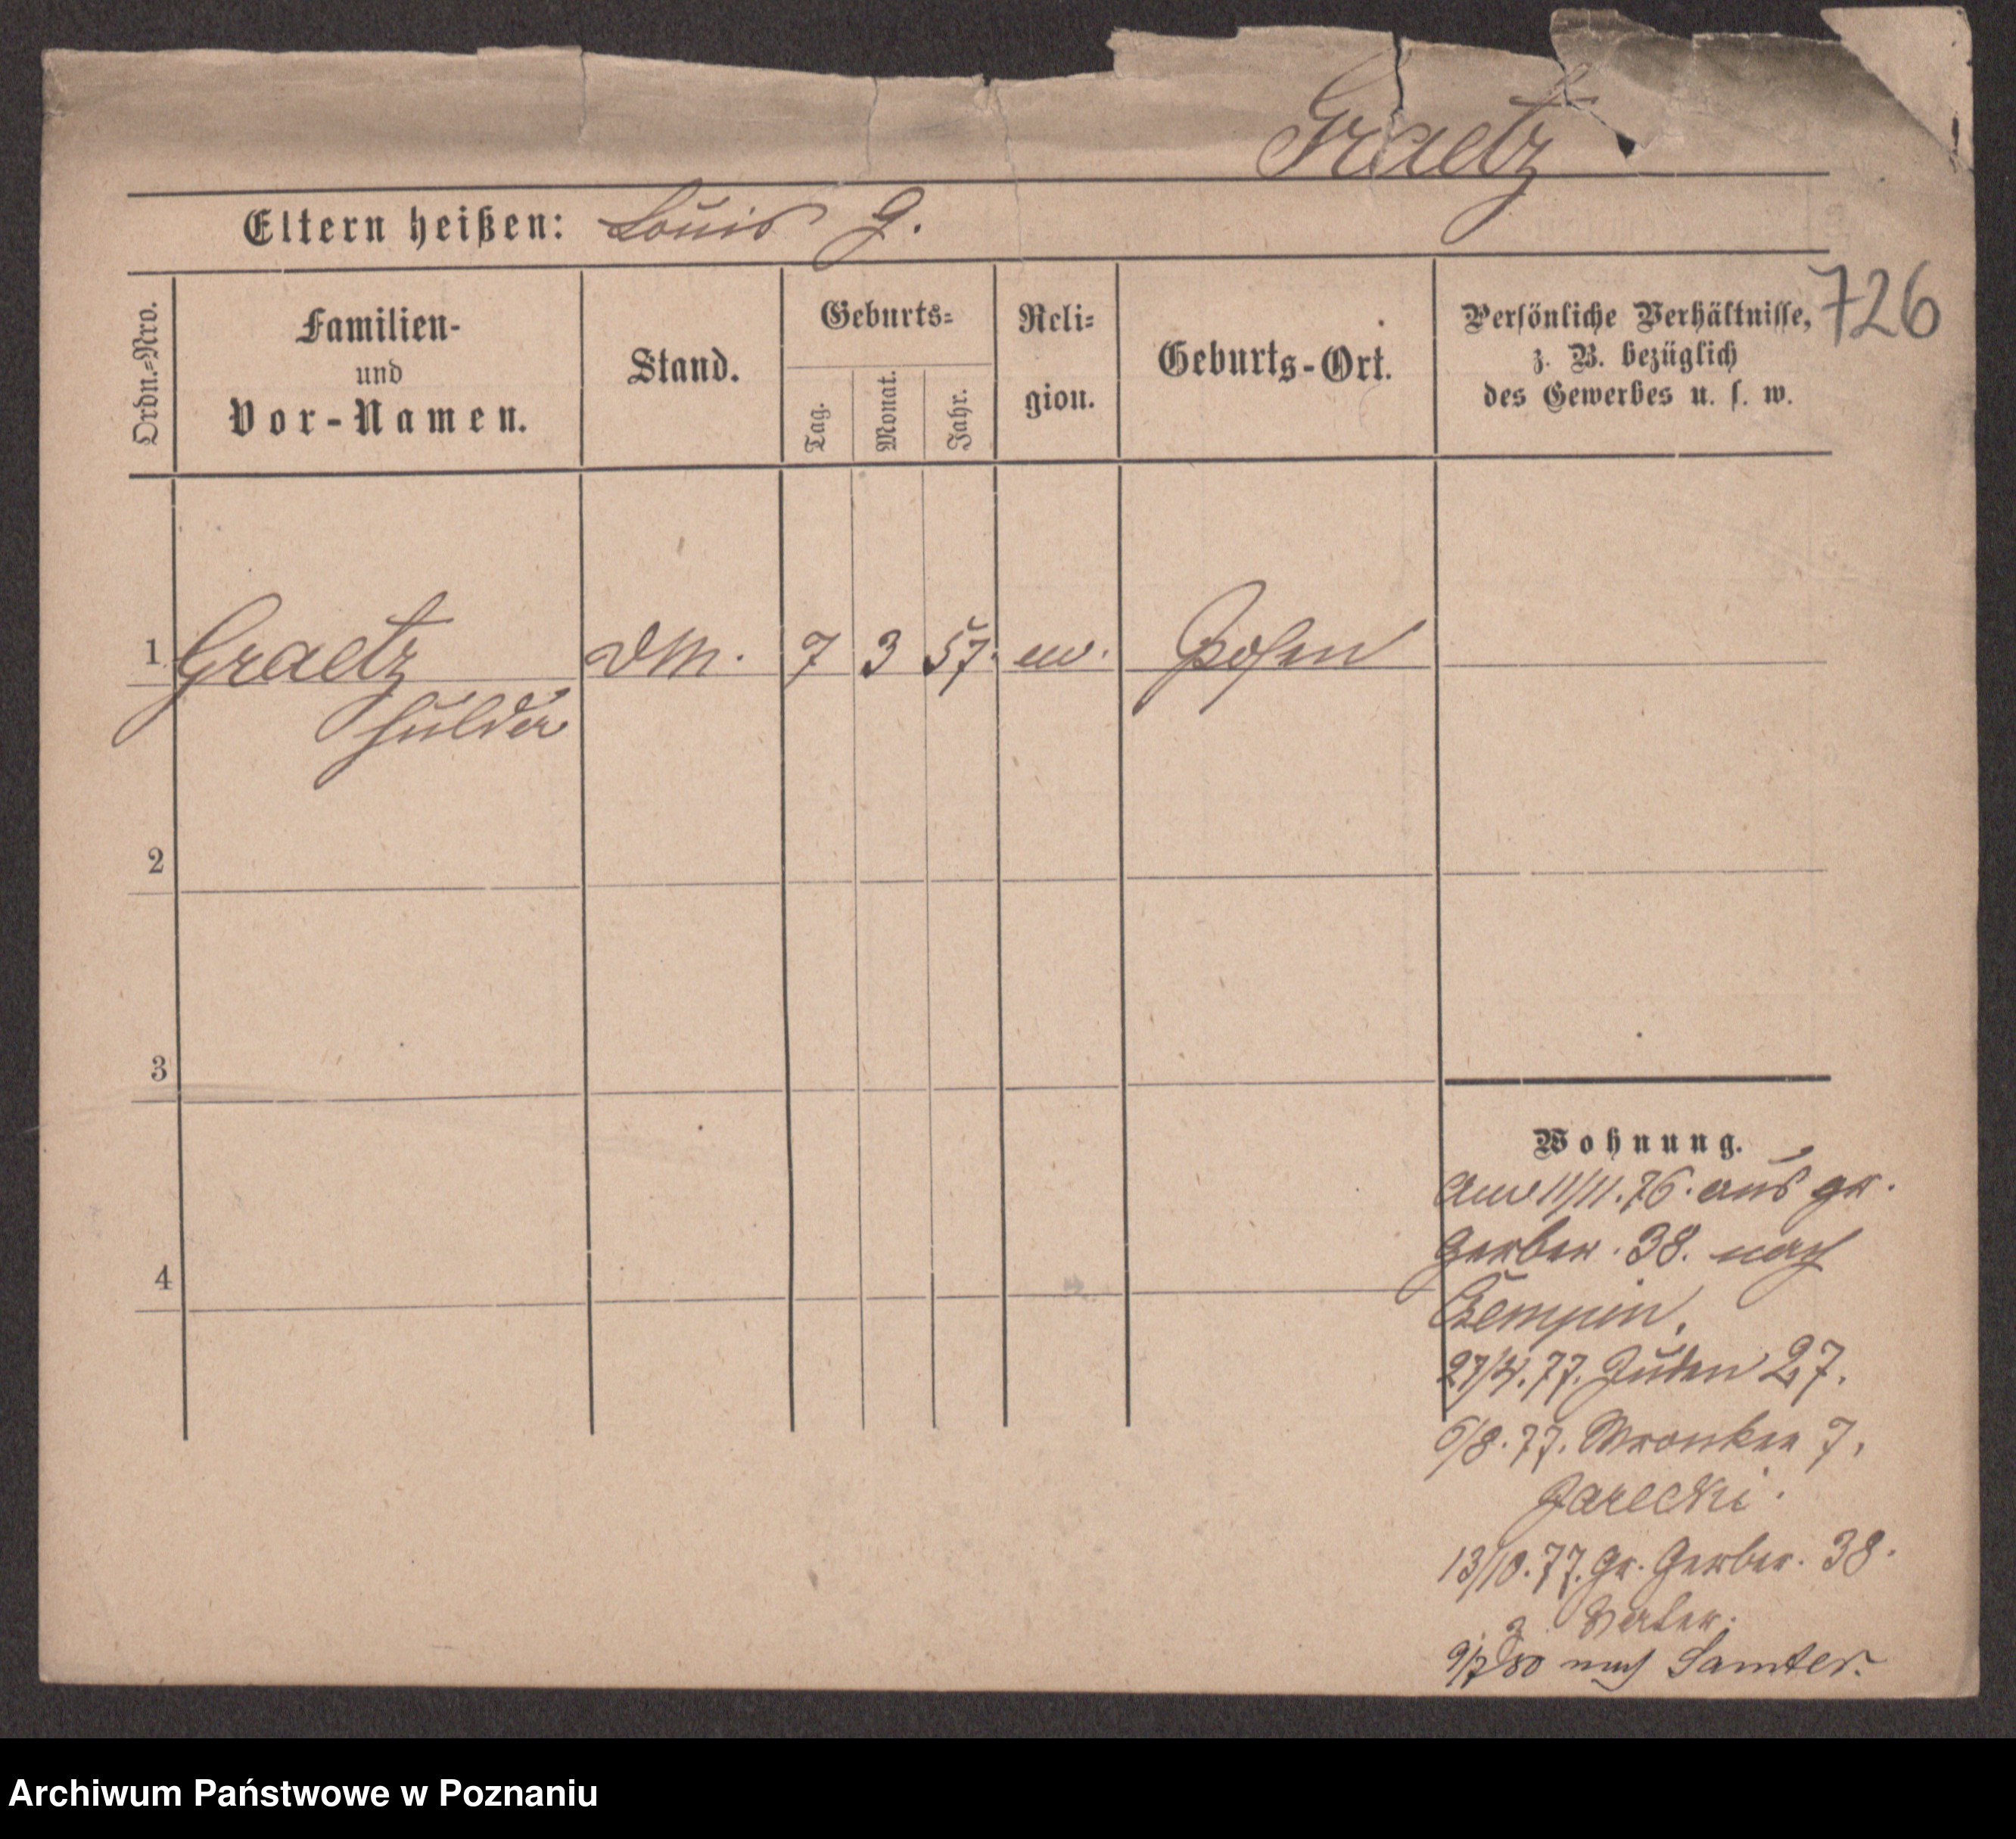 Graetz
Eltern heißen: Louis G.
726
Ordn.=Nro.
Familien-
und
Vor-Namen.
Stand.
Geburts=
Tag.
Monat.
Jahr.
Reli=
gion.
Geburts-Ort.
Persönliche Verhältnisse,
z. B. bezüglich
des Gewerbes u. s. w.
1 Graetz DM. 7 3 57. ev. Posen
Hulda
2
3
4
Wohnung.
11/11. 76. aus gr.
Gerber. 38. nach
Czempin.
27/4. 77. Juden 27.
6/8. 77. Wronker 7.
Jarecki.
13/10. 77. Gr. Gerber. 38.
Vater.
9/7 80 nach Samter.
Archiwum Państwowe w Poznaniu